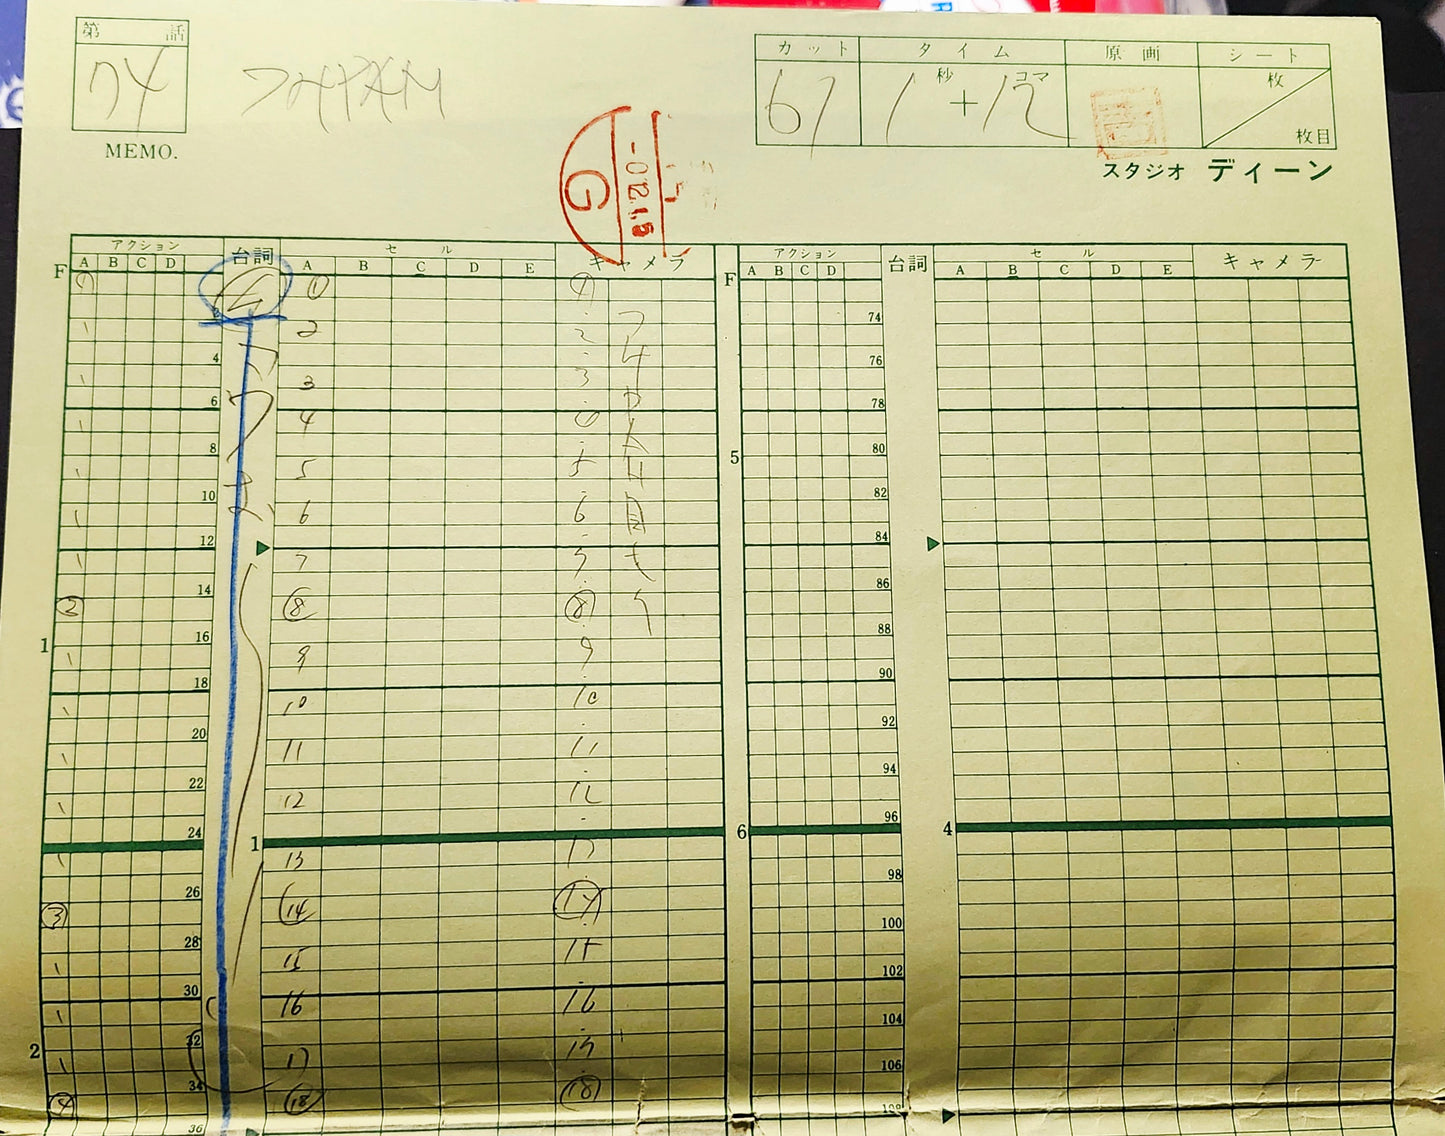 第 話
74
MEMO.
カット タイム 原画 シート
67 1秒+12コマ 枚
枚目
スタジオ ディーン
-0.12.1.6
G
F アクション 台詞 セル キャメラ F アクション 台詞 セル キャメラ
A B C D A B C D E A B C D A B C D E
1 1 1
74
2 2
4 76
3 3
6 78
4 4
8 5 80
5 5
10 82
6 6
12 84
7 7
14 86
2 8 8
1 16 88
9 9
18 90
10 10
20 92
11 11
22 94
12 12
24 96
1 6 4
13 13
26 98
3 14 14
28 100
15 15
30 102
16 16
32 104
2 17 17
34 106
4 18 18
36 108